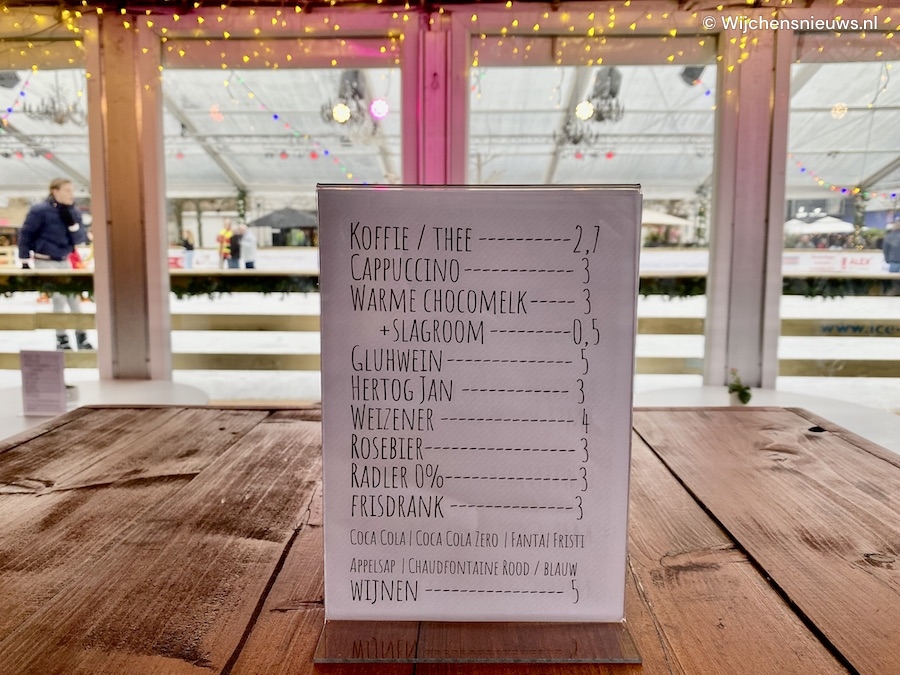 © Wijchensnieuws.nl
KOFFIE / THEE ----------2,7
CAPPUCCINO------------ 3
WARME CHOCOMELK----- 3
+SLAGROOM ---------0,5
GLUHWEIN--------------5
HERTOG JAN ------------3
WEIZENER --------------- 4
ROSEBIER----------------3
RADLER 0%--------------3
FRISDRANK -------------3
COCA COLA | COCA COLA ZERO | FANTA| FRISTI
APPELSAP | CHAUDFONTAINE ROOD / BLAUW
WIJNEN --------------- 5
www.ice-